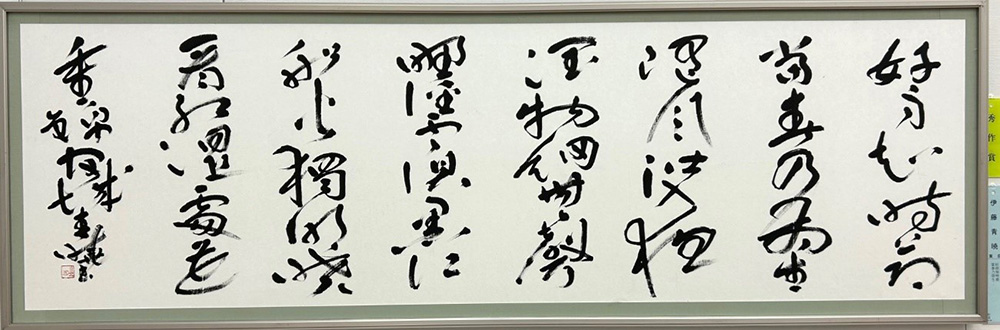 好雨知時節
當春乃發生
隨風潛入夜
潤物細無聲
野徑雲俱黑江
船火獨明曉
看紅濕處花
重錦
官城
秀作賞
伊藤青曉